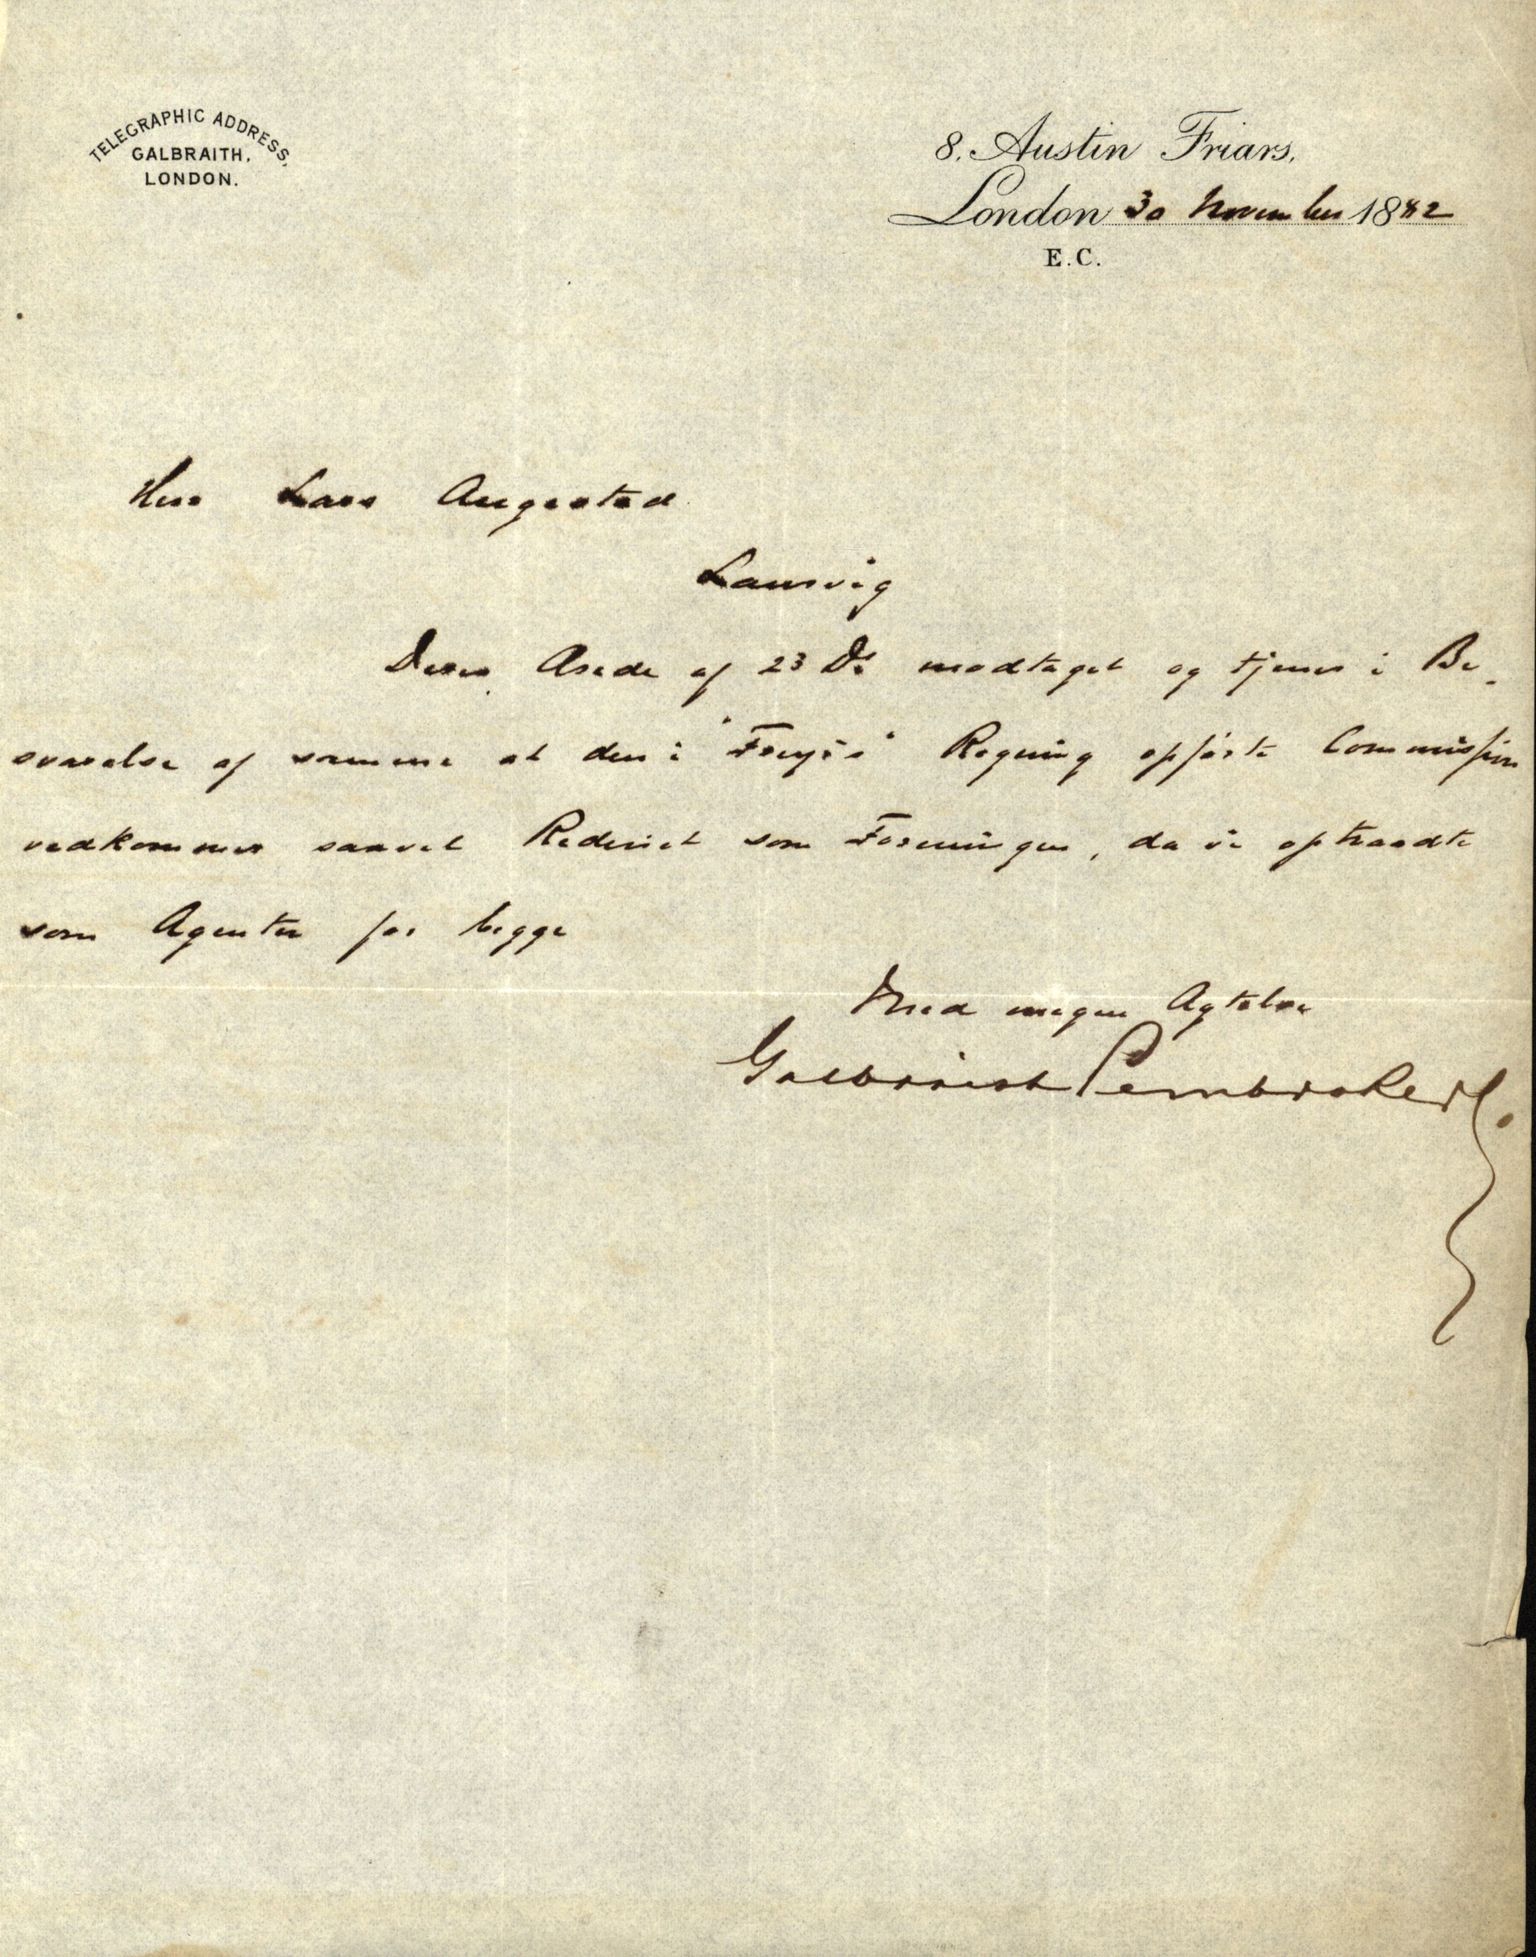 TELEGRAPHIC ADDRESS,
GALBRAITH,
LONDON.
8, Austin Friars,
London 30 November 1882
E.C.
Herr Lars Augestad
Laurvig
Deres Ærede af 23 Ds modtaget og tjener i Be-
svarelse af samme at den i "Freyr's" Regning opførte Commission
vedkommer saavel Rederiet som Foreningen, da vi optraadte
som Agenter for begge
Med megen Agtelse
Galbraith Pembroke & Co.